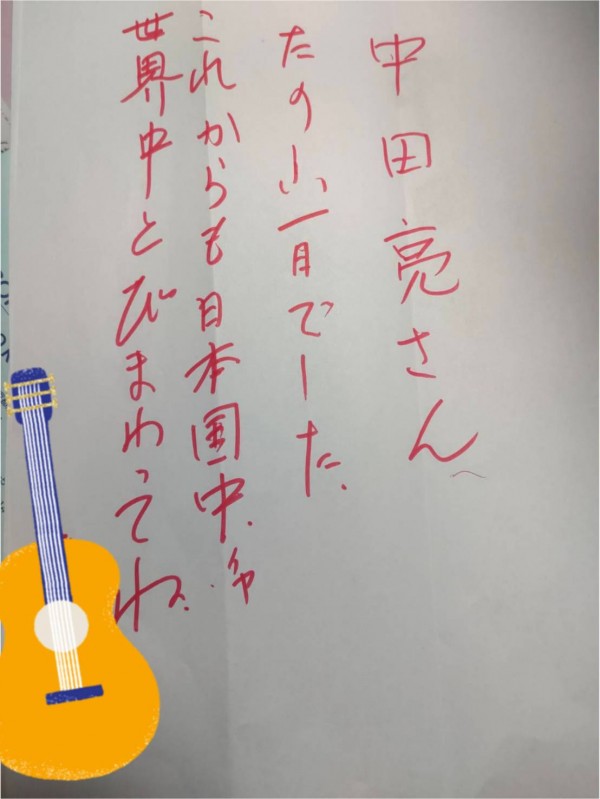 中田亮さん
たのしい一日でした.
これからも日本国中、イヤ
世界中とびまわってね.